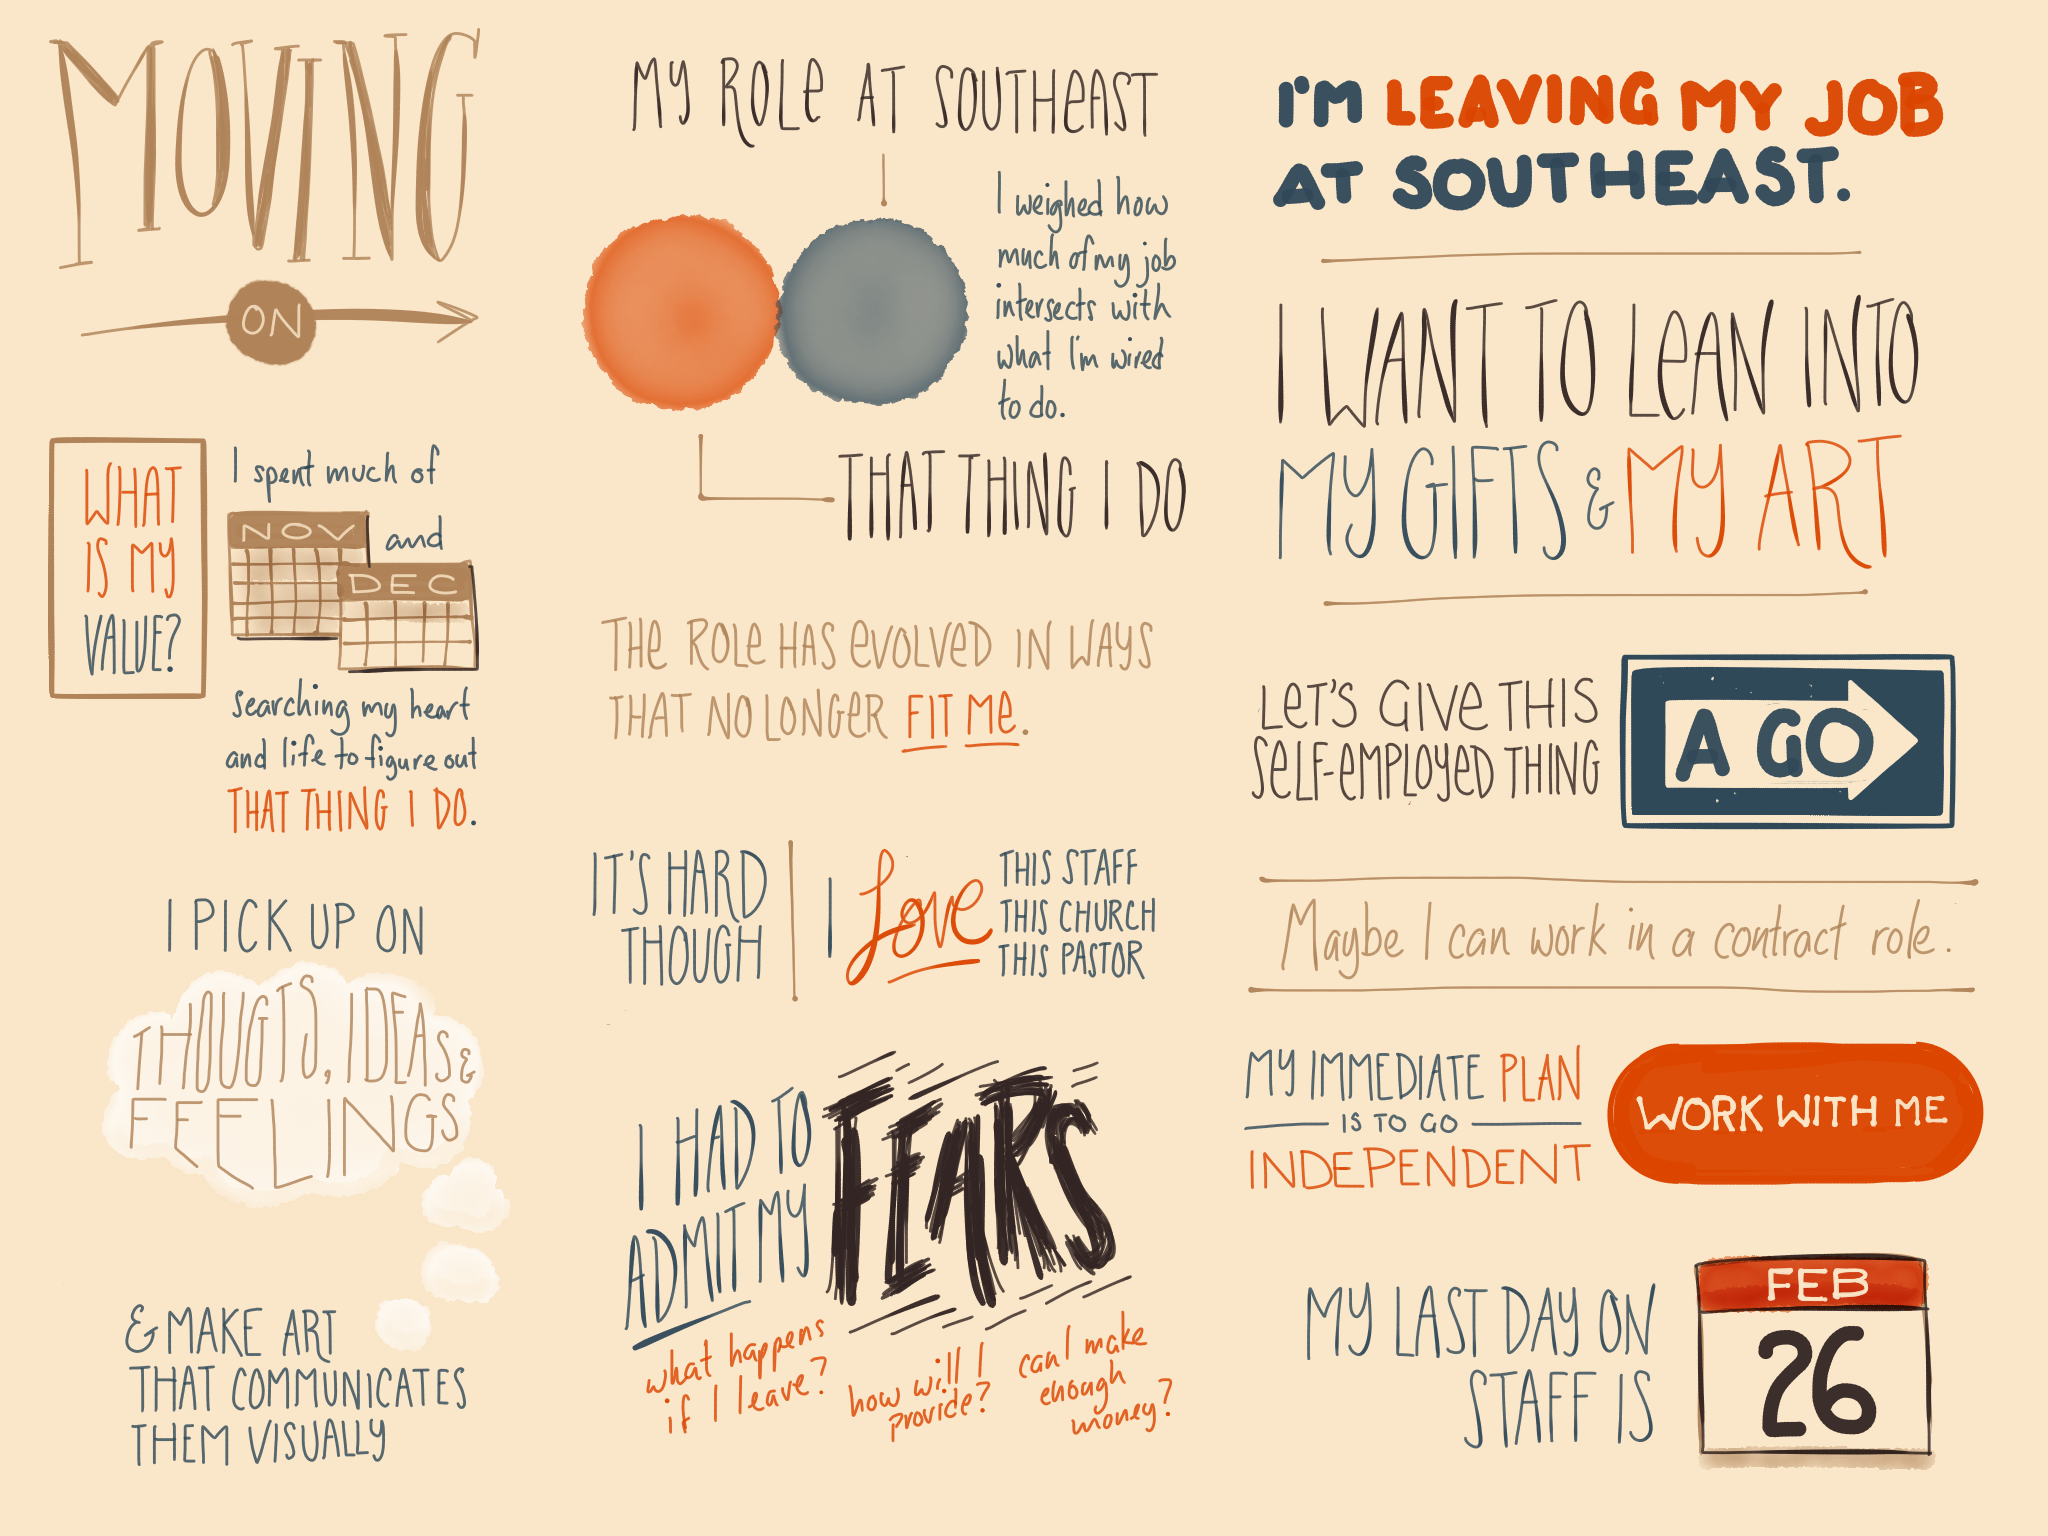 MOVING
ON
WHAT
IS MY
VALUE?
I spent much of
NOV
and
DEC
searching my heart
and life to figure out
THAT THING I DO.
I PICK UP ON
THOUGTS, IDEAS &
FEELINGS
& MAKE ART
THAT COMMUNICATES
THEM VISUALLY
MY ROLE AT SOUTHEAST
I weighed how
much of my job
intersects with
what I'm wired
to do.
THAT THING I DO
THE ROLE HAS EVOLVED IN WAYS
THAT NO LONGER FIT ME.
IT'S HARD
THOUGH
I Love
THIS STAFF
THIS CHURCH
THIS PASTOR
I HAD TO
ADMIT MY
FEARS
what happens
if I leave?
how will I
provide?
can I make
enough
money?
I'M LEAVING MY JOB
AT SOUTHEAST.
I WANT TO LEAN INTO
MY GIFTS & MY ART
LET'S GIVE THIS
SELF-EMPLOYED THING
A GO
Maybe I can work in a contract role.
MY IMMEDIATE PLAN
IS TO GO
INDEPENDENT
WORK WITH ME
MY LAST DAY ON
STAFF IS
FEB
26